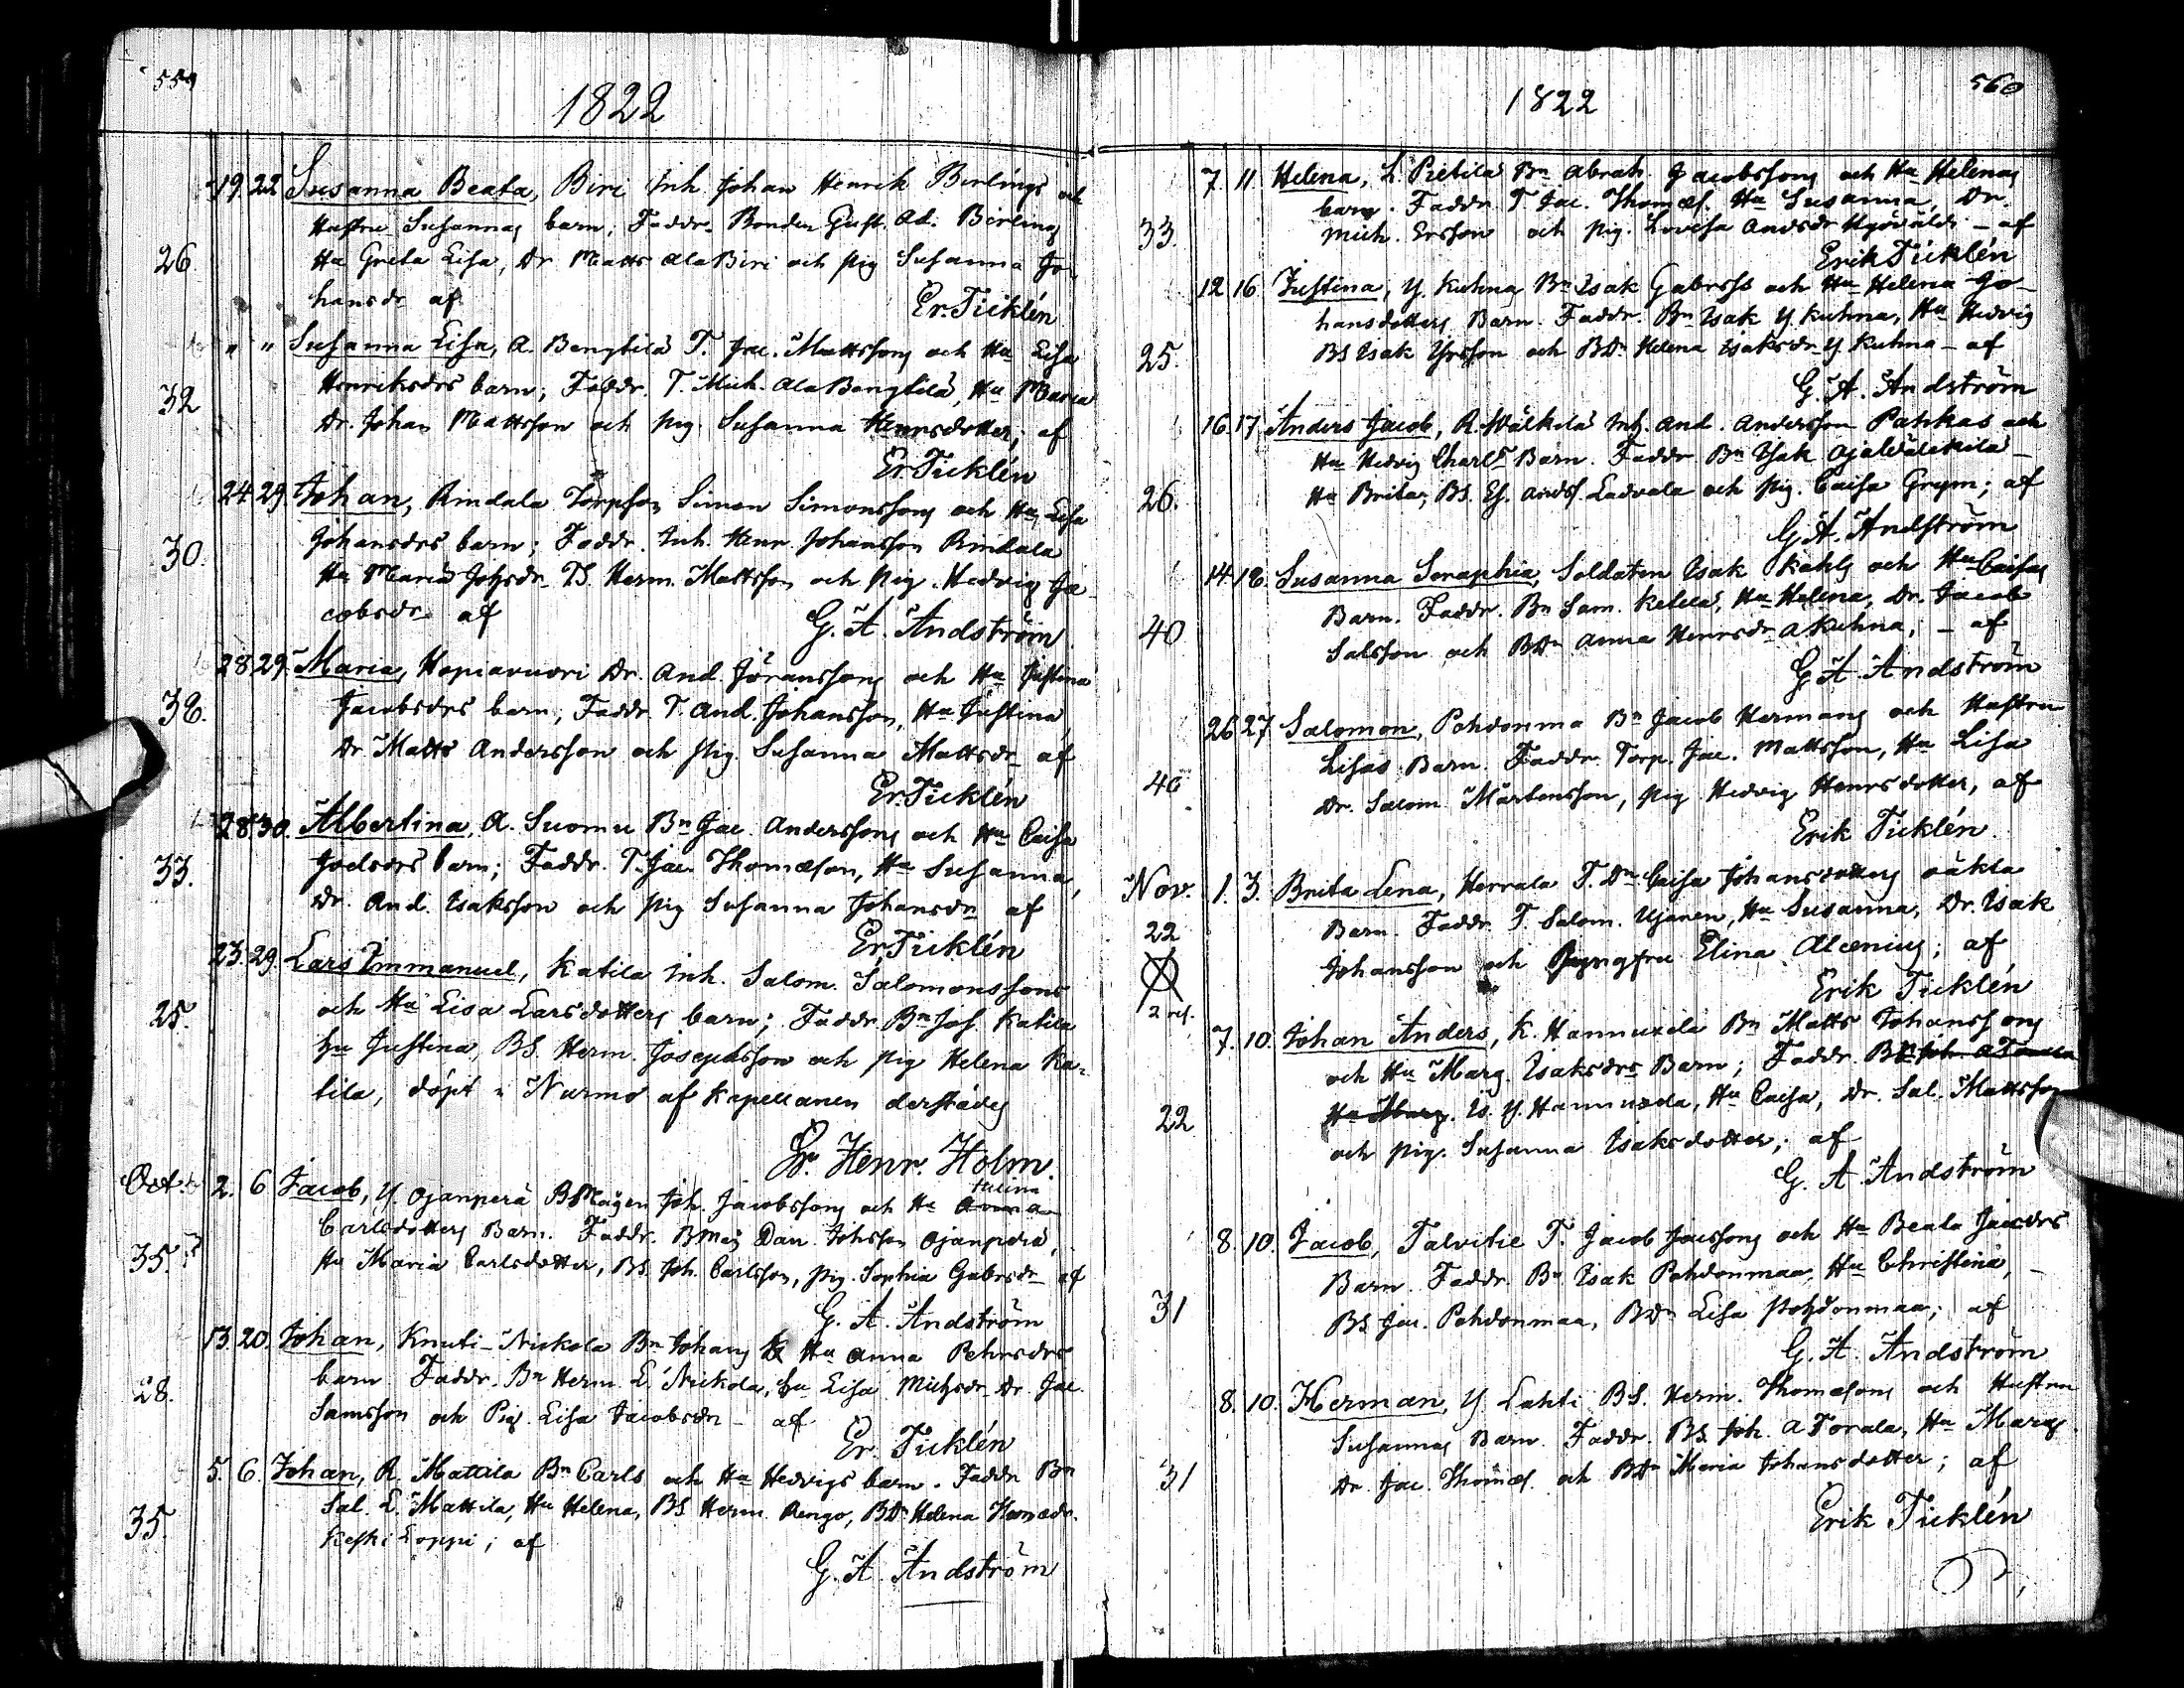 559
1822
19. 22 Susanna Beata, Biri Inh. Johan Henrik Birlings och
Hustru Susannas barn; Faddr. Bonden Gust. Ad. Birling
26 Hu Greta Lisa, Dr Matts Ala Biri och pig Susanna Jo-
hansdr af Er. Ticklén
" " Susanna Lisa, A. Bengtilä T. Jac. Mattssons och Hu Lisa
Henriksdrs barn; Faddr. T. Mich. Ala Bengtilä, Hu Maria
32
Dr. Johan Mattsson och pig. Susanna Henrsdotter; af
Er. Ticklén
24. 29. Johan, Rindala Torpson Simon Simonssons och Hu Lisa
Johansdrs barn; Faddr. Inh. Henr. Johansson Rindala
30.
Hu Maria Johsdr TS. Herm. Mattsson och pig. Hedvig Ja-
cobsdr af G. A. Andström
28. 29. Maria, Hopiavuori Dr. And. Jöranssons och Hu Justina
Jacobsdrs barn; Faddr. T. And. Johansson, Hu Justina,
38.
Dr. Matts Andersson och pig. Susanna Mattsdr af
Er. Ticklén
28. 30. Albertina, A. Suomu Bn Jac. Anderssons och Hu Caisa
Joelsdrs barn; Faddr. T. Jac. Thomæson, Hu Susanna,
33.
Dr. And. Isaksson och pig Susanna Johansdr af
Er. Ticklén
23. 29. Lars Immanuel, Katila Inh. Salom. Salomonssons
och Hu Lisa Larsdotters barn; Faddr. Bn Jos. Katila
25.
Hu Justina, BS. Herm. Josephsson och pig Helena Ka-
tila, döpt i Nurmo af Kapellanen derstädes
Gr. Henr. Holm.
Helena
Oct. 2. 6 Jacob, Y. Ojanperä BMågen Joh. Jacobssons och Hu Anna
Carlsdotters Barn. Faddr. BMåg Dan. Johsson Ojanperä,
35.
Hu Maria Carlsdotter, BS. Joh. Carlsson, pig. Sophia Gabrsdr af
G. A. Andström
13. 20. Johan, Knuti-Nickola Bn Johans & Hu Anna Pehrsdrs
barn. Faddr. Bn Herm. L. Nickola, Hu Lisa Michsdr Dr. Jac.
28.
Samsson och Pig. Lisa Jacobsdr - af
Er. Ticklén
5. 6. Johan, R. Mattila Bn Carls och Hu Hedvigs barn. Faddr Bn
Sal. L. Mattila, Hu Helena, BS Herm. Rengo, BDr Helena
35.
Keski Loppi; af
G. A. Andström
560
1822
7. 11. Helena, L. Pietilä Bn Abrah. Jacobssons och Hu Helenas
barn. Faddr. T. Jac. Thomæs. Hu Susanna, Dr.
33.
Mich. Ersson och pig. Lovisa Andsdr - af
Erik Ticklén
12. 16. Justina, Y. Kuhna Bn Isak Gabrss och Hu Helena Jo-
hansdotters Barn. Faddr. Bn Isak Y. Kuhna, Hu Hedvig
25.
BS Isak Yrsson och BDr Helena Isaksdr Y. Kuhna - af
G. A. Andström
16. 17. Anders Jacob, R. Wälkilä Inh. And. Andersson Pahkas och
Hu Hedvig Charl. Barn. Faddr. Bn Isak -
26.
Hu Brita, BS. Es. Ands. Ladvala och pig. Caisa Grym; af
G. A. Andström
14. 18. Susanna Seraphia, Soldaten Isak Kahls och Hu Caisas
Barn. Faddr. Bn Sam. Ketola, Hu Helena, Dr. Jacob
40
Salsson och BDr Anna Henrsdr A Kuhna; - af
G. A. Andström
26. 27. Salomon, Pohdonma Bn Jacob Hermans och Hustru
Lisas Barn. Faddr. Torp. Jac. Mattsson, Hu Lisa
40
Dr. Salom. Mårtensson, pig Hedvig Henrsdotter, af
Erik Ticklén.
Nov. 1. 3. Brita Lena, Herrala T. Dr. Caisa Johansdotters oäkta
22 Barn. Faddr. T. Salom. Ujanen, Hu Susanna, Dr. Isak
Johansson och Jungfru Elina Alcenius; af
Erik Ticklén
7. 10. Johan Anders, K. Hannuxela Bn Matts Johanssons
och Hu Marg. Isaksdrs Barn; Faddr. BS Joh. A Torala
22 Hu Marg. Is. Y. Hannuxela, Hu Caisa, Dr. Sal. Mattsson
och pig. Susanna Isaksdotter; af
G. A. Andström
8. 10. Jacob, Talvitie T. Jacob Jacssons och Hu Beata Jacsdrs
Barn. Faddr. Bn Isak Pohdonmaa, Hu Christina, -
31
BS Jac. Pohdonmaa, BDr Lisa Pohdonmaa; af
G. A. Andström
8. 10. Herman, Y. Lahti BS. Herm. Thomæsons och Hustru
Susannas Barn. Faddr. BS Joh. A Torala, Hu Marg
31
Dr. Jac. Thomæs. och BDr Maria Johansdotter; af
Erik Ticklén